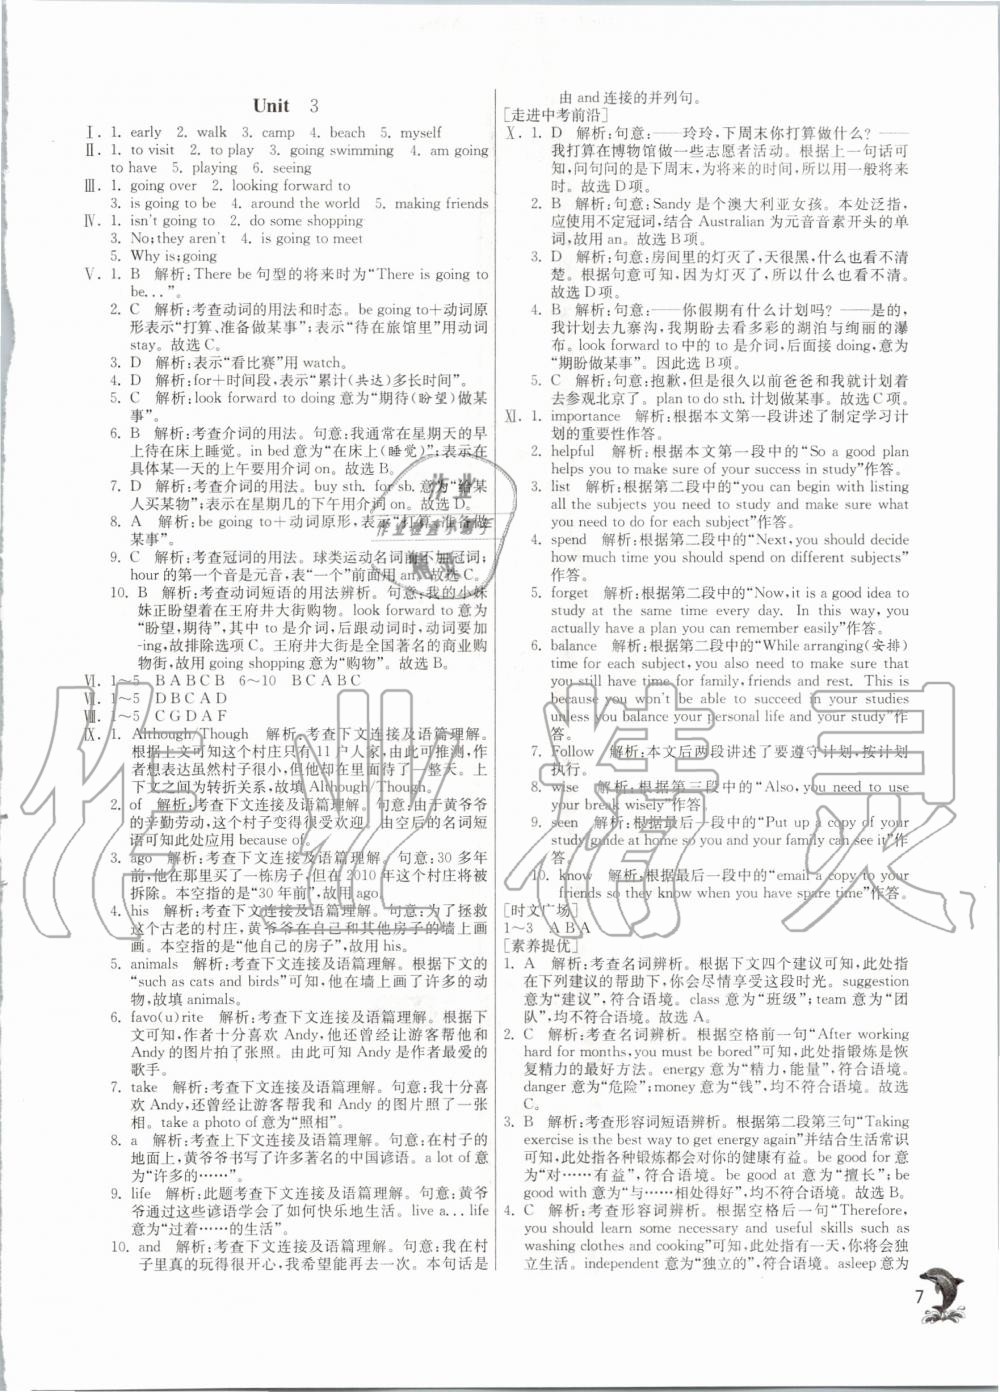 Unit 3
Ⅰ. 1. early 2. walk 3. camp 4. beach 5. myself
Ⅱ. 1. to visit 2. to play 3. going swimming 4. am going
to have 5. playing 6. seeing
Ⅲ. 1. going over 2. looking forward to
3. is going to be 4. around the world 5. making friends
Ⅳ. 1. isn't going to 2. do some shopping
3. No;they aren't 4. is going to meet
5. Why is;going
Ⅴ. 1. B 解析:There be 句型的将来时为“There is going to
be...”。
2. C 解析:考查动词的用法和时态。be going to+动词原
形表示“打算、准备做某事”;表示“待在旅馆里”用动词
stay。故选C。
3. D 解析:表示“看比赛”用 watch。
4. D 解析:for+时间段,表示“累计(共达)多长时间”。
5. C 解析:look forward to doing 意为“期待(盼望)做某
事”。
6. B 解析:考查介词的用法。句意:我通常在星期天的早
上待在床上睡觉。in bed 意为“在床上(睡觉)”;表示在
具体某一天的上午要用介词 on。故选B。
7. D 解析:考查介词的用法。buy sth. for sb. 意为“给某
人买某物”;表示在星期几的下午用介词 on。故选D。
8. A 解析:be going to+动词原形,表示“打算、准备做
某事”。
9. C 解析:考查冠词的用法。球类运动名词前不加冠词;
hour 的第一个音是元音,表“一个”前面用 an。故选C。
10. B 解析:考查动词短语的用法辨析。句意:我的小妹
妹正盼望着在王府井大街购物。look forward to 意为
“盼望,期待”,其中 to 是介词,后跟动词时,动词要加
-ing,故排除选项C。王府井大街是全国著名的商业购
物街,故用 going shopping 意为“购物”。故选B。
Ⅵ. 1～5 BABCB 6～10 BCABC
Ⅶ. 1～5 DBCAD
Ⅷ. 1～5 CGDAF
Ⅸ. 1. Although/Though 解析:考查下文连接及语篇理解。
根据上文可知这个村庄只有 11 户人家,由此可推测,作
者想表达虽然村子很小,但他们却在那里待了一整天。上
下文之间为转折关系,故填 Although/Though。
2. of 解析:考查下文连接及语篇理解。句意:由于黄爷爷
的辛勤劳动,这个村子变得很受欢迎。由空后的名词短
语可知此处应用 because of。
3. ago 解析:考查下文连接及语篇理解。句意:30 多年
前,他在那里买了一栋房子,但在 2010 年这个村庄将被
拆除。本空指的是“30 年前”,故用 ago。
4. his 解析:考查下文连接及语篇理解。句意:为了拯救
这个古老的村庄,黄爷爷在自己和其他房子的墙上画
画。本空指的是“他自己的房子”,故用 his。
5. animals 解析:考查下文连接及语篇理解。根据下文的
“such as cats and birds”可知,他在墙上画了许多的动
物,故填 animals。
6. favo(u)rite 解析:考查下文连接及语篇理解。根据下
文可知,作者十分喜欢 Andy,他还曾经让游客帮他和
Andy 的图片拍了张照。由此可知 Andy 是作者最爱的
歌手。
7. take 解析:考查下文连接及语篇理解。句意:我十分喜
欢 Andy,还曾经让游客帮我和 Andy 的图片照了一张
相。take a photo of 意为“照相”。
8. a 解析:考查上下文连接及语篇理解。句意:在村子的
地面上,黄爷爷书写了许多著名的中国谚语。a lot of 意
为“许多的……”。
9. life 解析:此题考查下文连接及语篇理解。句意:黄爷
爷通过这些谚语学会了如何快乐地生活。live a... life
意为“过着……的生活”。
10. and 解析:考查下文连接及语篇理解。句意:我在村
子里真的玩得很开心,我希望能再去一次。本句话是
由 and 连接的并列句。
[走进中考前沿]
Ⅹ. 1. D 解析:句意:——玲玲,下周末你打算做什么? ——
我打算在博物馆做一些志愿者活动。根据上一句话可
知,问句问的是下周末,为将来的时间,所以用一般将来
时。故选D项。
2. B 解析:句意:Sandy 是个澳大利亚女孩。本处泛指,
应使用不定冠词,结合 Australian 为元音音素开头的单
词,故用 an。故选B项。
3. D 解析:句意:房间里的灯灭了,天很黑,什么也看不清
楚。根据句意可知,因为灯灭了,所以什么也看不清楚。
故选D项。
4. B 解析:句意:——你假期有什么计划吗? ——是的,
我计划去九寨沟,我期盼去看多彩的湖泊与绚丽的瀑
布。look forward to 中的 to 是介词,后面接 doing,意为
“期盼做某事”。因此选B项。
5. C 解析:句意:抱歉,但是很久以前爸爸和我就计划着
去参观北京了。plan to do sth. 计划做某事。故选C项。
Ⅺ. 1. importance 解析:根据本文第一段讲述了制定学习计
划的重要性作答。
2. helpful 解析:根据本文第一段中的“So a good plan
helps you to make sure of your success in study”作答。
3. list 解析:根据第二段中的“you can begin with listing
all the subjects you study and then make sure what
you need to do for each subject”作答。
4. spend 解析:根据第二段中的“Next,you should decide
how much time you should spend on different subjects”
作答。
5. forget 解析:根据第二段中的“Now,it is a good idea to
study at the same time every day. In this way,you
actually have a plan you can remember easily”作答。
6. balance 解析:根据第二段中的“While arranging(安排)
time for each subject,you also need to make sure that
you still have time for family,friends and rest. This is
because you won't be able to succeed in your studies
unless you balance your personal life and your study”作
答。
7. Follow 解析:本文后两段讲述了要遵守计划,按计划
执行。
8. wise 解析:根据第三段中的“Also,you need to use
your break wisely”作答。
9. seen 解析:根据最后一段中的“Put up a copy of your
study guide at home so you and your family can see it”
作答。
10. know 解析:根据最后一段中的“email a copy to your
friends so they know when you have spare time”作答。
[时文广场]
1～3 ABA
[素养提优]
1. A 解析:考查名词辨析。根据下文四个建议可知,此处指
在下列建议的帮助下,你会尽情享受这段时光。suggestion
意为“建议”,符合语境。class 意为“班级”;team 意为“团
队”,均不符合语境。故选A。
2. C 解析:考查名词辨析。根据空格前一句“After working
hard for months,you must be bored”可知,此处指锻炼是恢
复精力的最好方法。energy 意为“精力,能量”,符合语境。
danger 意为“危险”;money 意为“钱”,均不符合语境。故选
C。
3. B 解析:考查形容词短语辨析。根据第二段第三句“Taking
exercise is the best way to get energy again”并结合生活常识
可知,此处指各种锻炼都会对你的健康有益。be good for
意为“对……有益”,符合语境。be good at 意为“擅长”;be
good with 意为“与……相处得好”,均不符合语境。故选B。
4. C 解析:考查形容词辨析。根据空格后一句“Therefore,
you should learn some necessary and useful skills such as
washing clothes and cooking”可知,此处指有一天,你将会独
立生活。independent 意为“独立的”,符合语境。asleep 意为
7